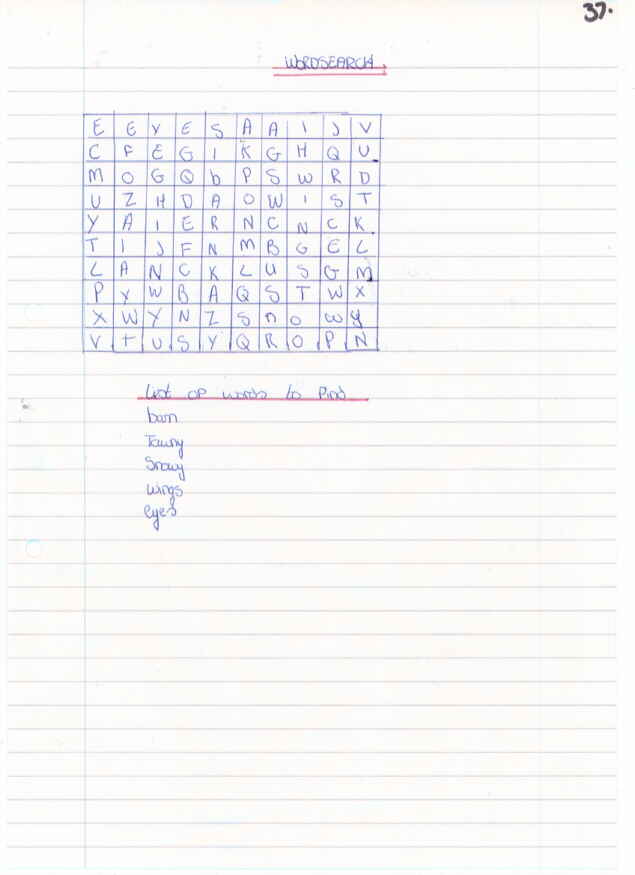 37.
WORDSEARCH.
E E Y E S A A I J V
C F E G I K G H Q U
M O G Q b P S W R D
U Z H D A O W I S T
Y A I E R N C N C K
T I J F N M B G E L
L A N C K L U S G M
P Y W B A Q S T W X
X W Y N Z S n o w y
V T U S Y Q R O P N
List of words to find
barn
Tawny
Snowy
wings
eyes